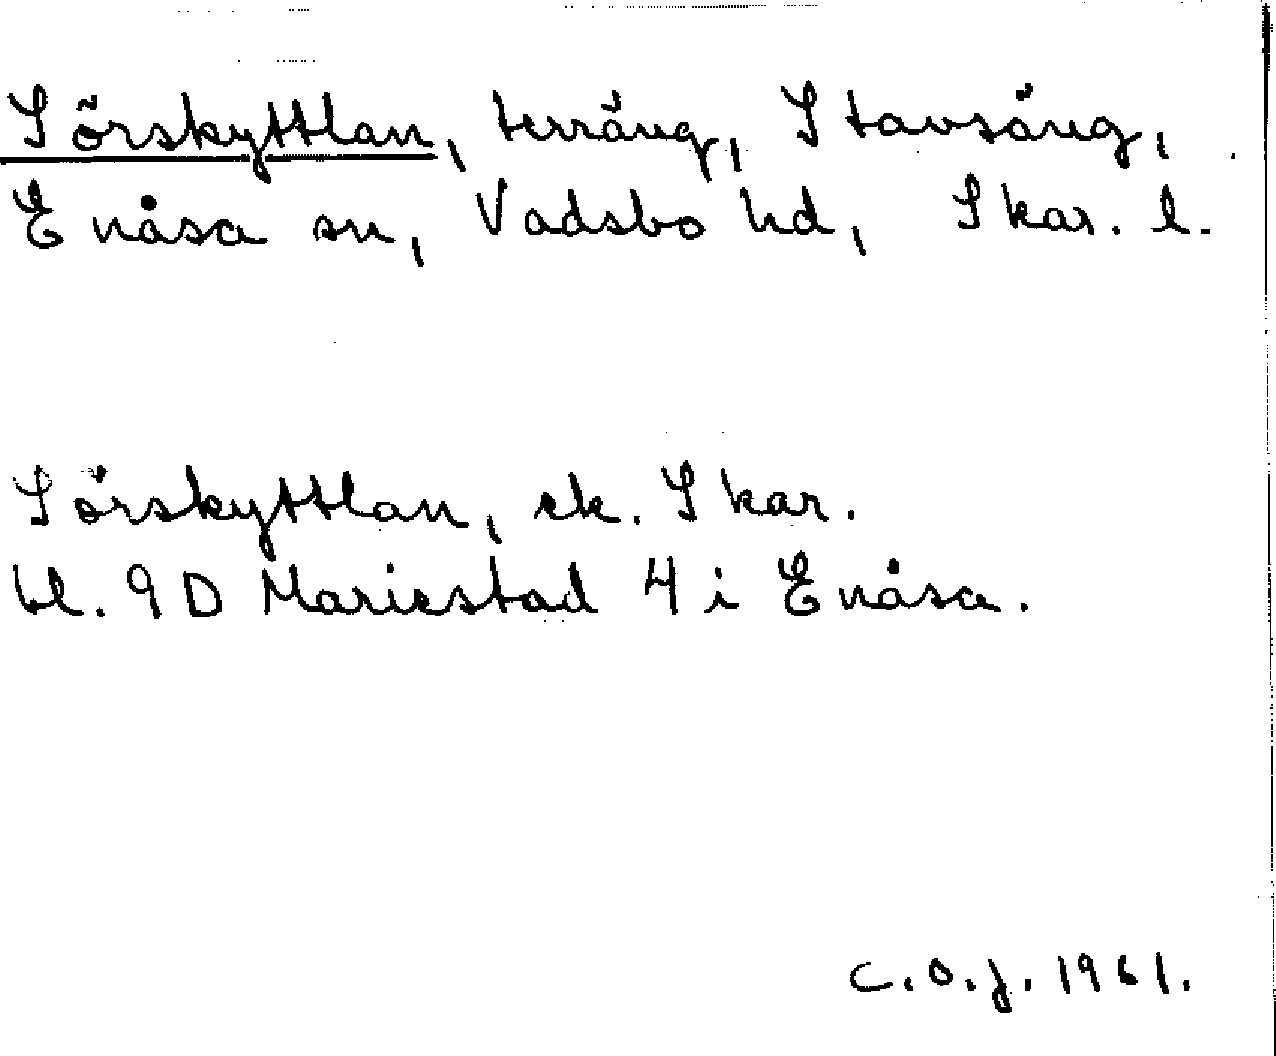 Sörskyttlan, terräng, Stavsäng,
Enåsa sn, Vadsbo hd, Skar. l.
Sörskyttlan, ek. Skar.
bl. 9D Mariestad 4 i Enåsa.
C.O.J. 1961.